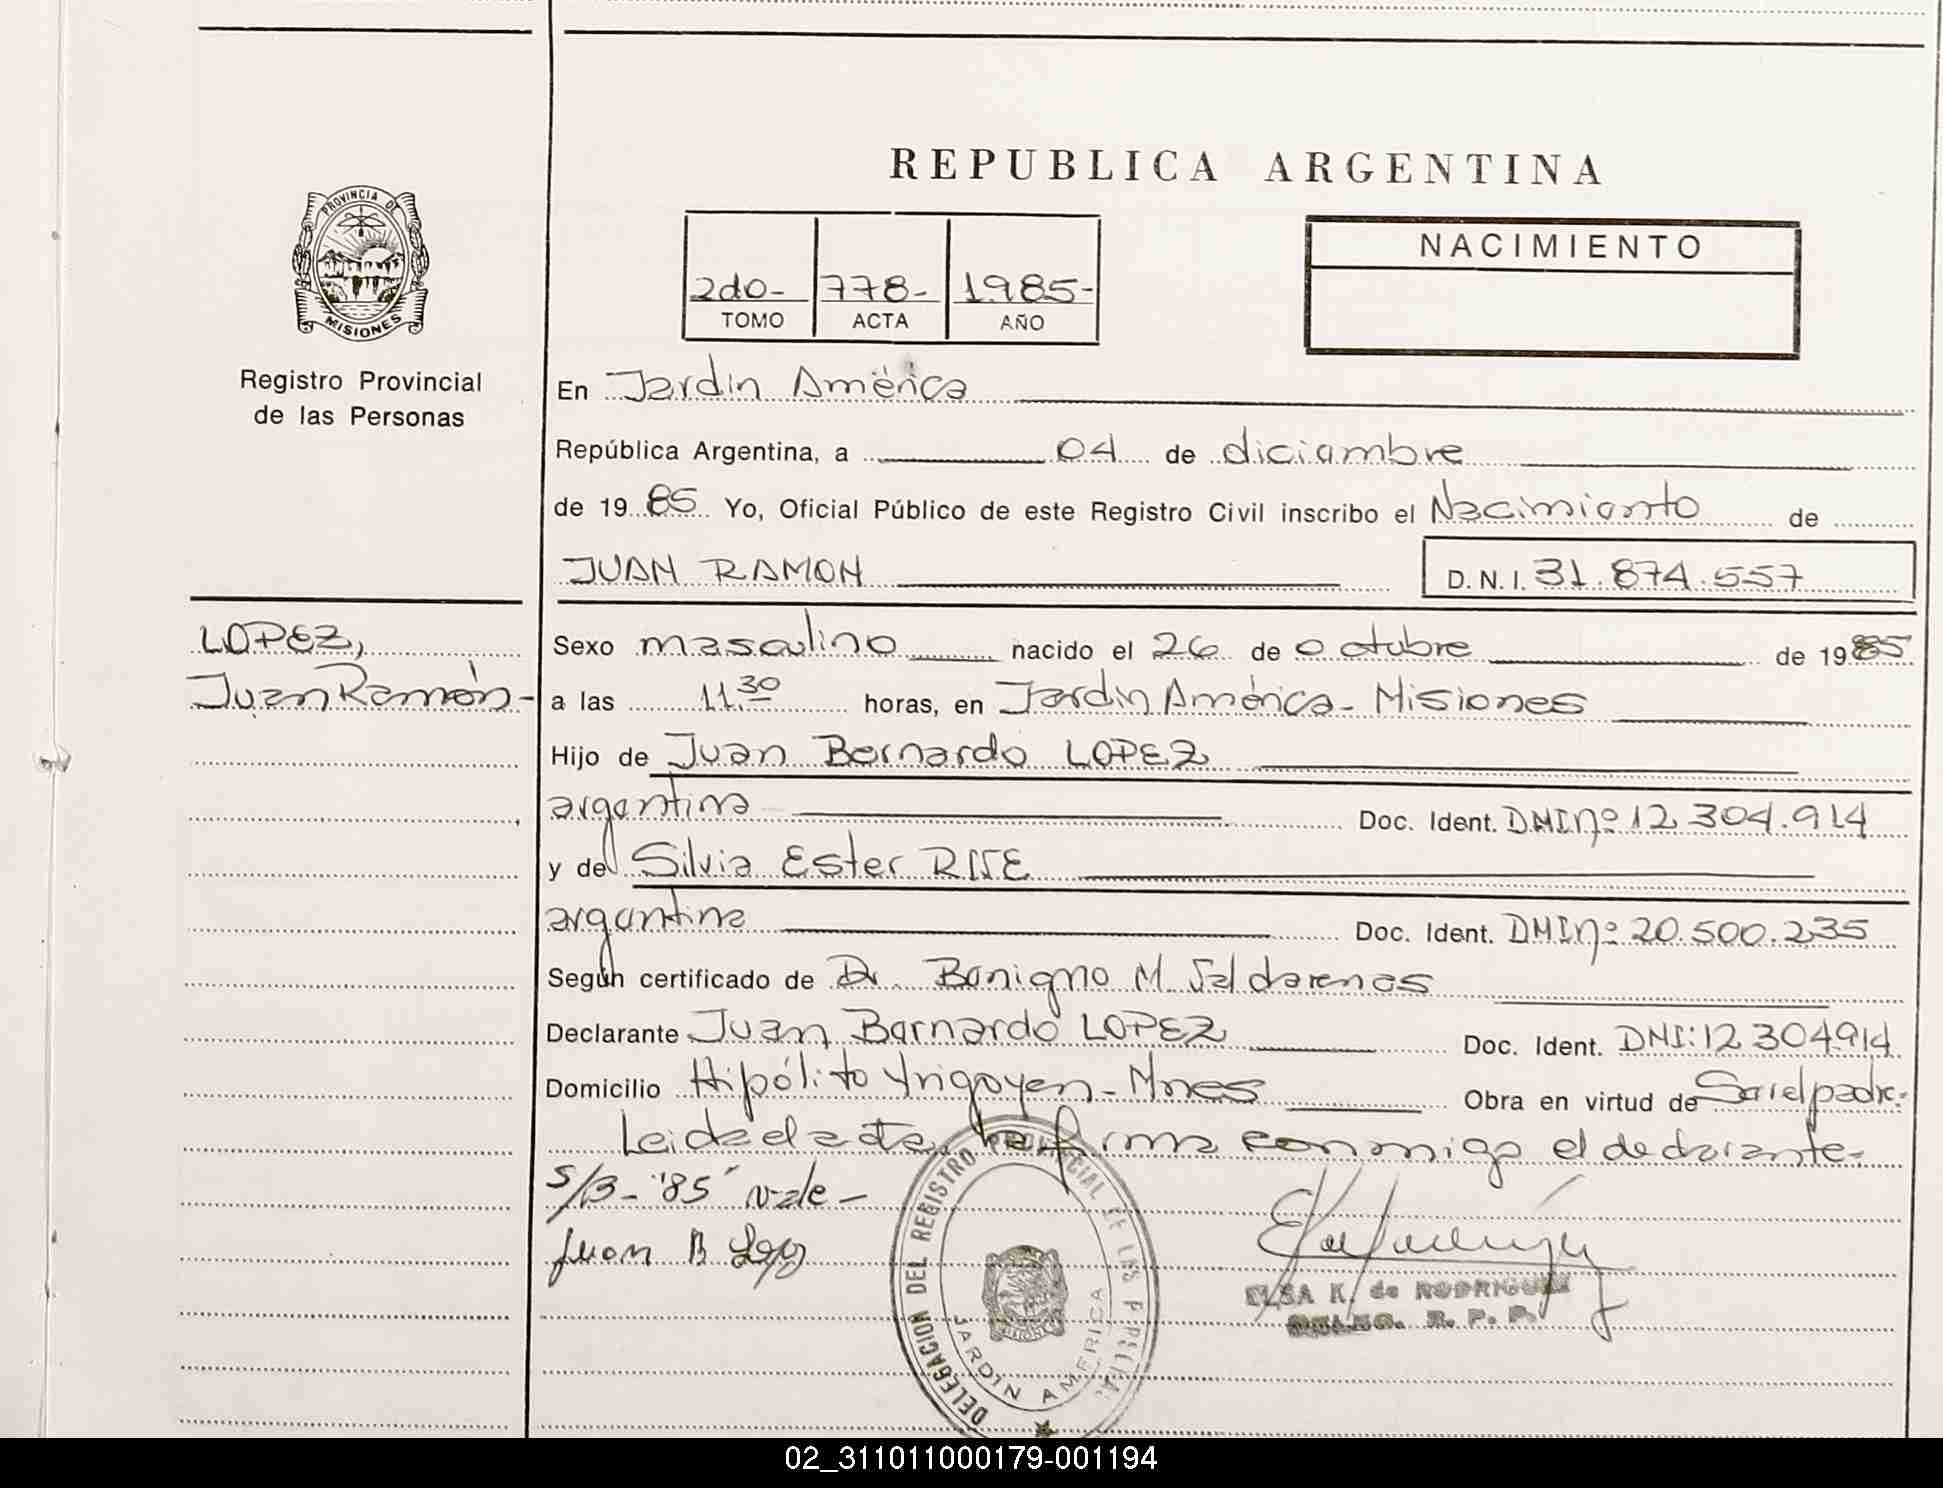 REPUBLICA ARGENTINA
PROVINCIA DE
MISIONES
Registro Provincial
de las Personas
2do- 778- 1985-
TOMO ACTA AÑO
NACIMIENTO
En Jardin América
República Argentina, a 04 de diciembre
de 1985 Yo, Oficial Público de este Registro Civil inscribo el Nacimiento de
JUAN RAMON D.N.I. 31.874.557
LOPEZ,
Juan Ramón-
Sexo masculino nacido el 26 de octubre de 1985
a las 11.30 horas, en Jardin América - Misiones
Hijo de Juan Bernardo LOPEZ
argentina Doc. Ident. DNI nº 12.304.914
y de Silvia Ester
argentina Doc. Ident. DNI nº 20.500.235
Según certificado de Dr. Benigno M.
Declarante Juan Bernardo LOPEZ Doc. Ident. DNI: 12.304914
Domicilio Hipólito Yrigoyen - Mnes Obra en virtud de Ser el padre.-
Leida el acta, la firma conmigo el declarante-
S/B- "85" vale -
Juan B Lopez
ELSA K. de RODRIGUEZ
DELEG. R. P. P.
DELEGACION DEL REGISTRO PROVINCIAL DE LAS PERSONAS
JARDIN AMERICA
MISIONES
02_311011000179-001194